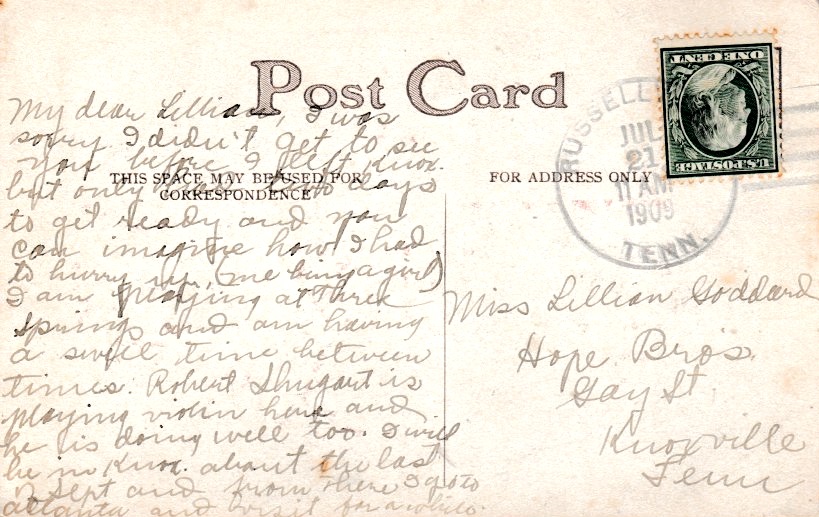 Post Card
THIS SPACE MAY BE USED FOR
CORRESPONDENCE
FOR ADDRESS ONLY
My dear Lillian, I was
sorry I didn't get to see
you before I left Knox.
but only had two days
to get ready and you
can imagine how I had
to hurry up, (me being a girl)
I am playing at Three
Springs and am having
a swell time between
times. Robert Shugart is
playing violin here and
he is doing well too. I will
be in Knox. about the last
Sept and from there I go to
Atlanta and visit for a while.
Miss Lillian Goddard
Hope Bro's.
Gay St.
Knoxville
Tenn
RUSSELL
JUL
21
11 AM
1909
TENN.
U.S. POSTAGE
ONE CENT